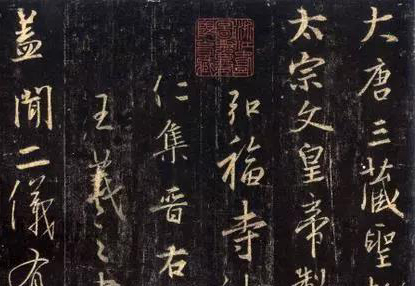 大唐三藏聖
太宗文皇帝製
弘福寺
仁集晉右
王羲之
蓋聞二儀有